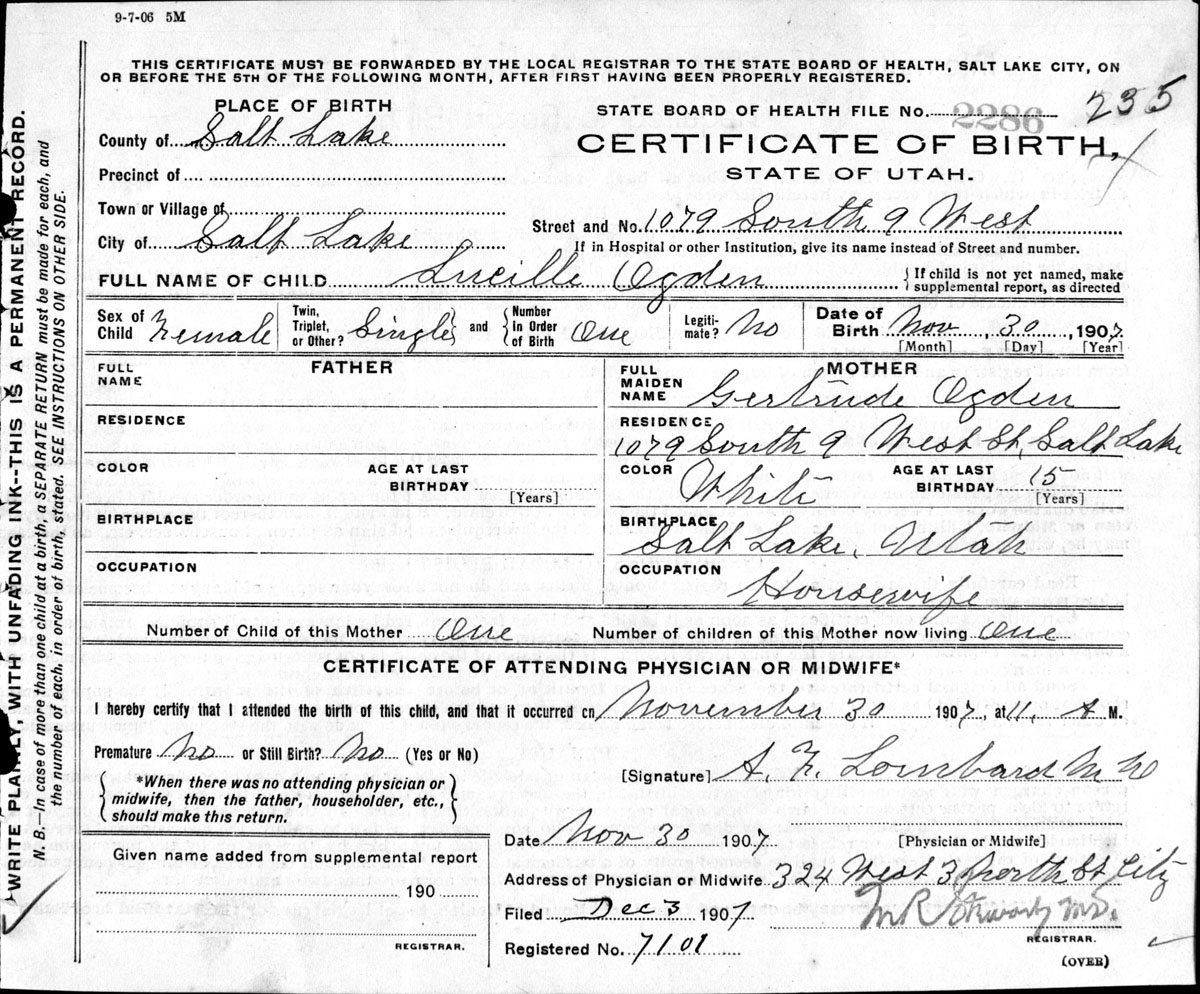 9-7-06 5M
THIS CERTIFICATE MUST BE FORWARDED BY THE LOCAL REGISTRAR TO THE STATE BOARD OF HEALTH, SALT LAKE CITY, ON
OR BEFORE THE 5TH OF THE FOLLOWING MONTH, AFTER FIRST HAVING BEEN PROPERLY REGISTERED.
PLACE OF BIRTH
STATE BOARD OF HEALTH FILE No. 2286 235
County of Salt Lake
CERTIFICATE OF BIRTH,
Precinct of
STATE OF UTAH.
Town or Village of
Street and No. 1079 South 9 West
City of Salt Lake
If in Hospital or other Institution, give its name instead of Street and number.
FULL NAME OF CHILD Lucille Ogden
{If child is not yet named, make
supplemental report, as directed
Sex of Child Female
Twin, Triplet, or Other? Single} and {Number in Order of Birth One
Legiti-mate? No
Date of Birth Nov 30, 1907
[Month] [Day] [Year]
FATHER
FULL NAME
RESIDENCE
COLOR
AGE AT LAST BIRTHDAY
[Years]
BIRTHPLACE
OCCUPATION
MOTHER
FULL MAIDEN NAME Gertrude Ogden
RESIDENCE
1079 South 9 West St, Salt Lake
COLOR White
AGE AT LAST BIRTHDAY 15
[Years]
BIRTHPLACE
Salt Lake, Utah
OCCUPATION
Housewife
Number of Child of this Mother One
Number of children of this Mother now living One
CERTIFICATE OF ATTENDING PHYSICIAN OR MIDWIFE*
I hereby certify that I attended the birth of this child, and that it occurred on November 30 1907, at 11. A M.
Premature No or Still Birth? No (Yes or No)
[Signature] A. F. Lombard M D
{*When there was no attending physician or
midwife, then the father, householder, etc.,
should make this return.}
Date Nov 30 1907
[Physician or Midwife]
Given name added from supplemental report
Address of Physician or Midwife 324 West 3 North St City
190
Filed Dec 3 1907
REGISTRAR.
REGISTRAR.
Registered No. 7101
(OVER)
WRITE PLAINLY, WITH UNFADING INK--THIS IS A PERMANENT RECORD.
N. B.—In case of more than one child at a birth, a SEPARATE RETURN must be made for each, and
the number of each, in order of birth, stated. SEE INSTRUCTIONS ON OTHER SIDE.